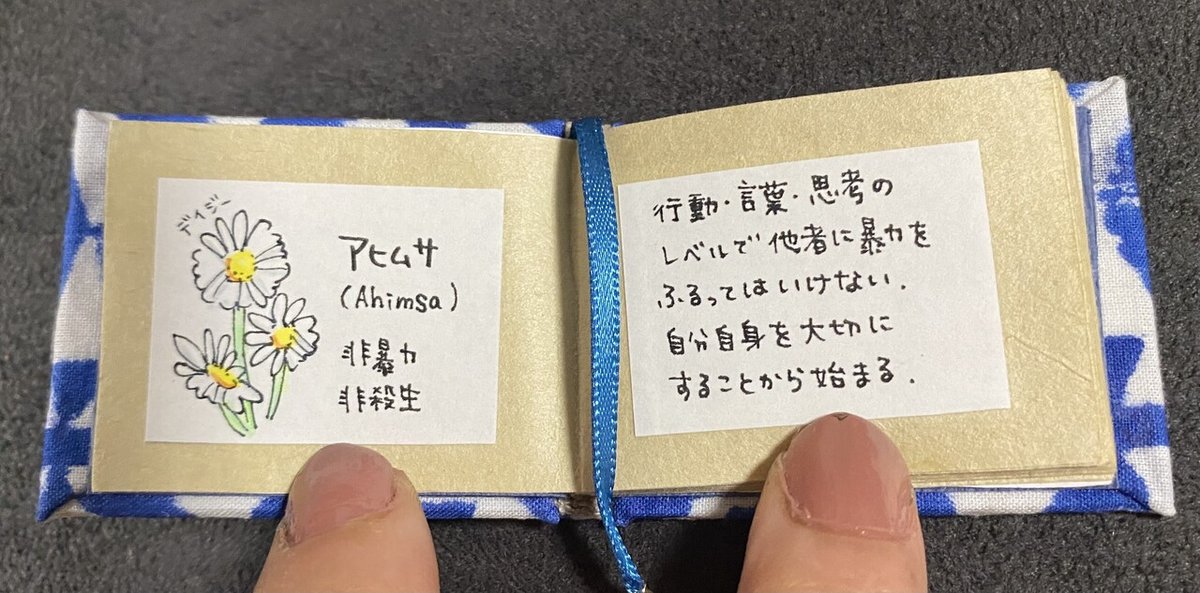 デイジー
アヒムサ
(Ahimsa)
非暴力
非殺生
行動・言葉・思考の
レベルで他者に暴力を
ふるってはいけない.
自分自身を大切に
することから始まる.